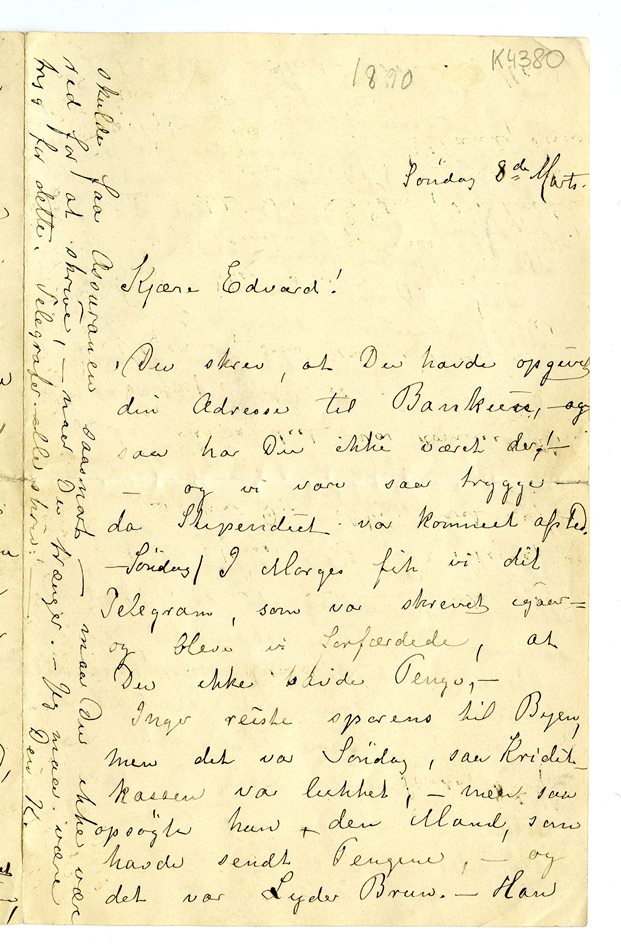 K4380
1890
Søndag 8de Marts.
Kjære Edvard!
Du skrev, at Du havde opgivet
din Adresse til Banken, – og
saa har Du ikke været der,! –
– og vi vare saa trygge –
da Stipendiet var kommet afsted.
– Søndag / I Morges fik vi dit
Telegram, som var skrevet igaar –
og bleve vi forfærdede, at
Du ikke havde Penge, –
Inger reiste sporens til Byen,
men det var Søndag, saa Kredit-
kassen var lukket, – men saa
opsøgte hun den Mand, som
havde sendt Pengene, – og
det var Lyder Brun. – Han
skulde faa Assurancen saasnart – maa Du ikke være
ræd for at skrive, – naar Du trænger. – Jeg maa være
tryg for dette. Telegrafer eller skriv! –
Din K.